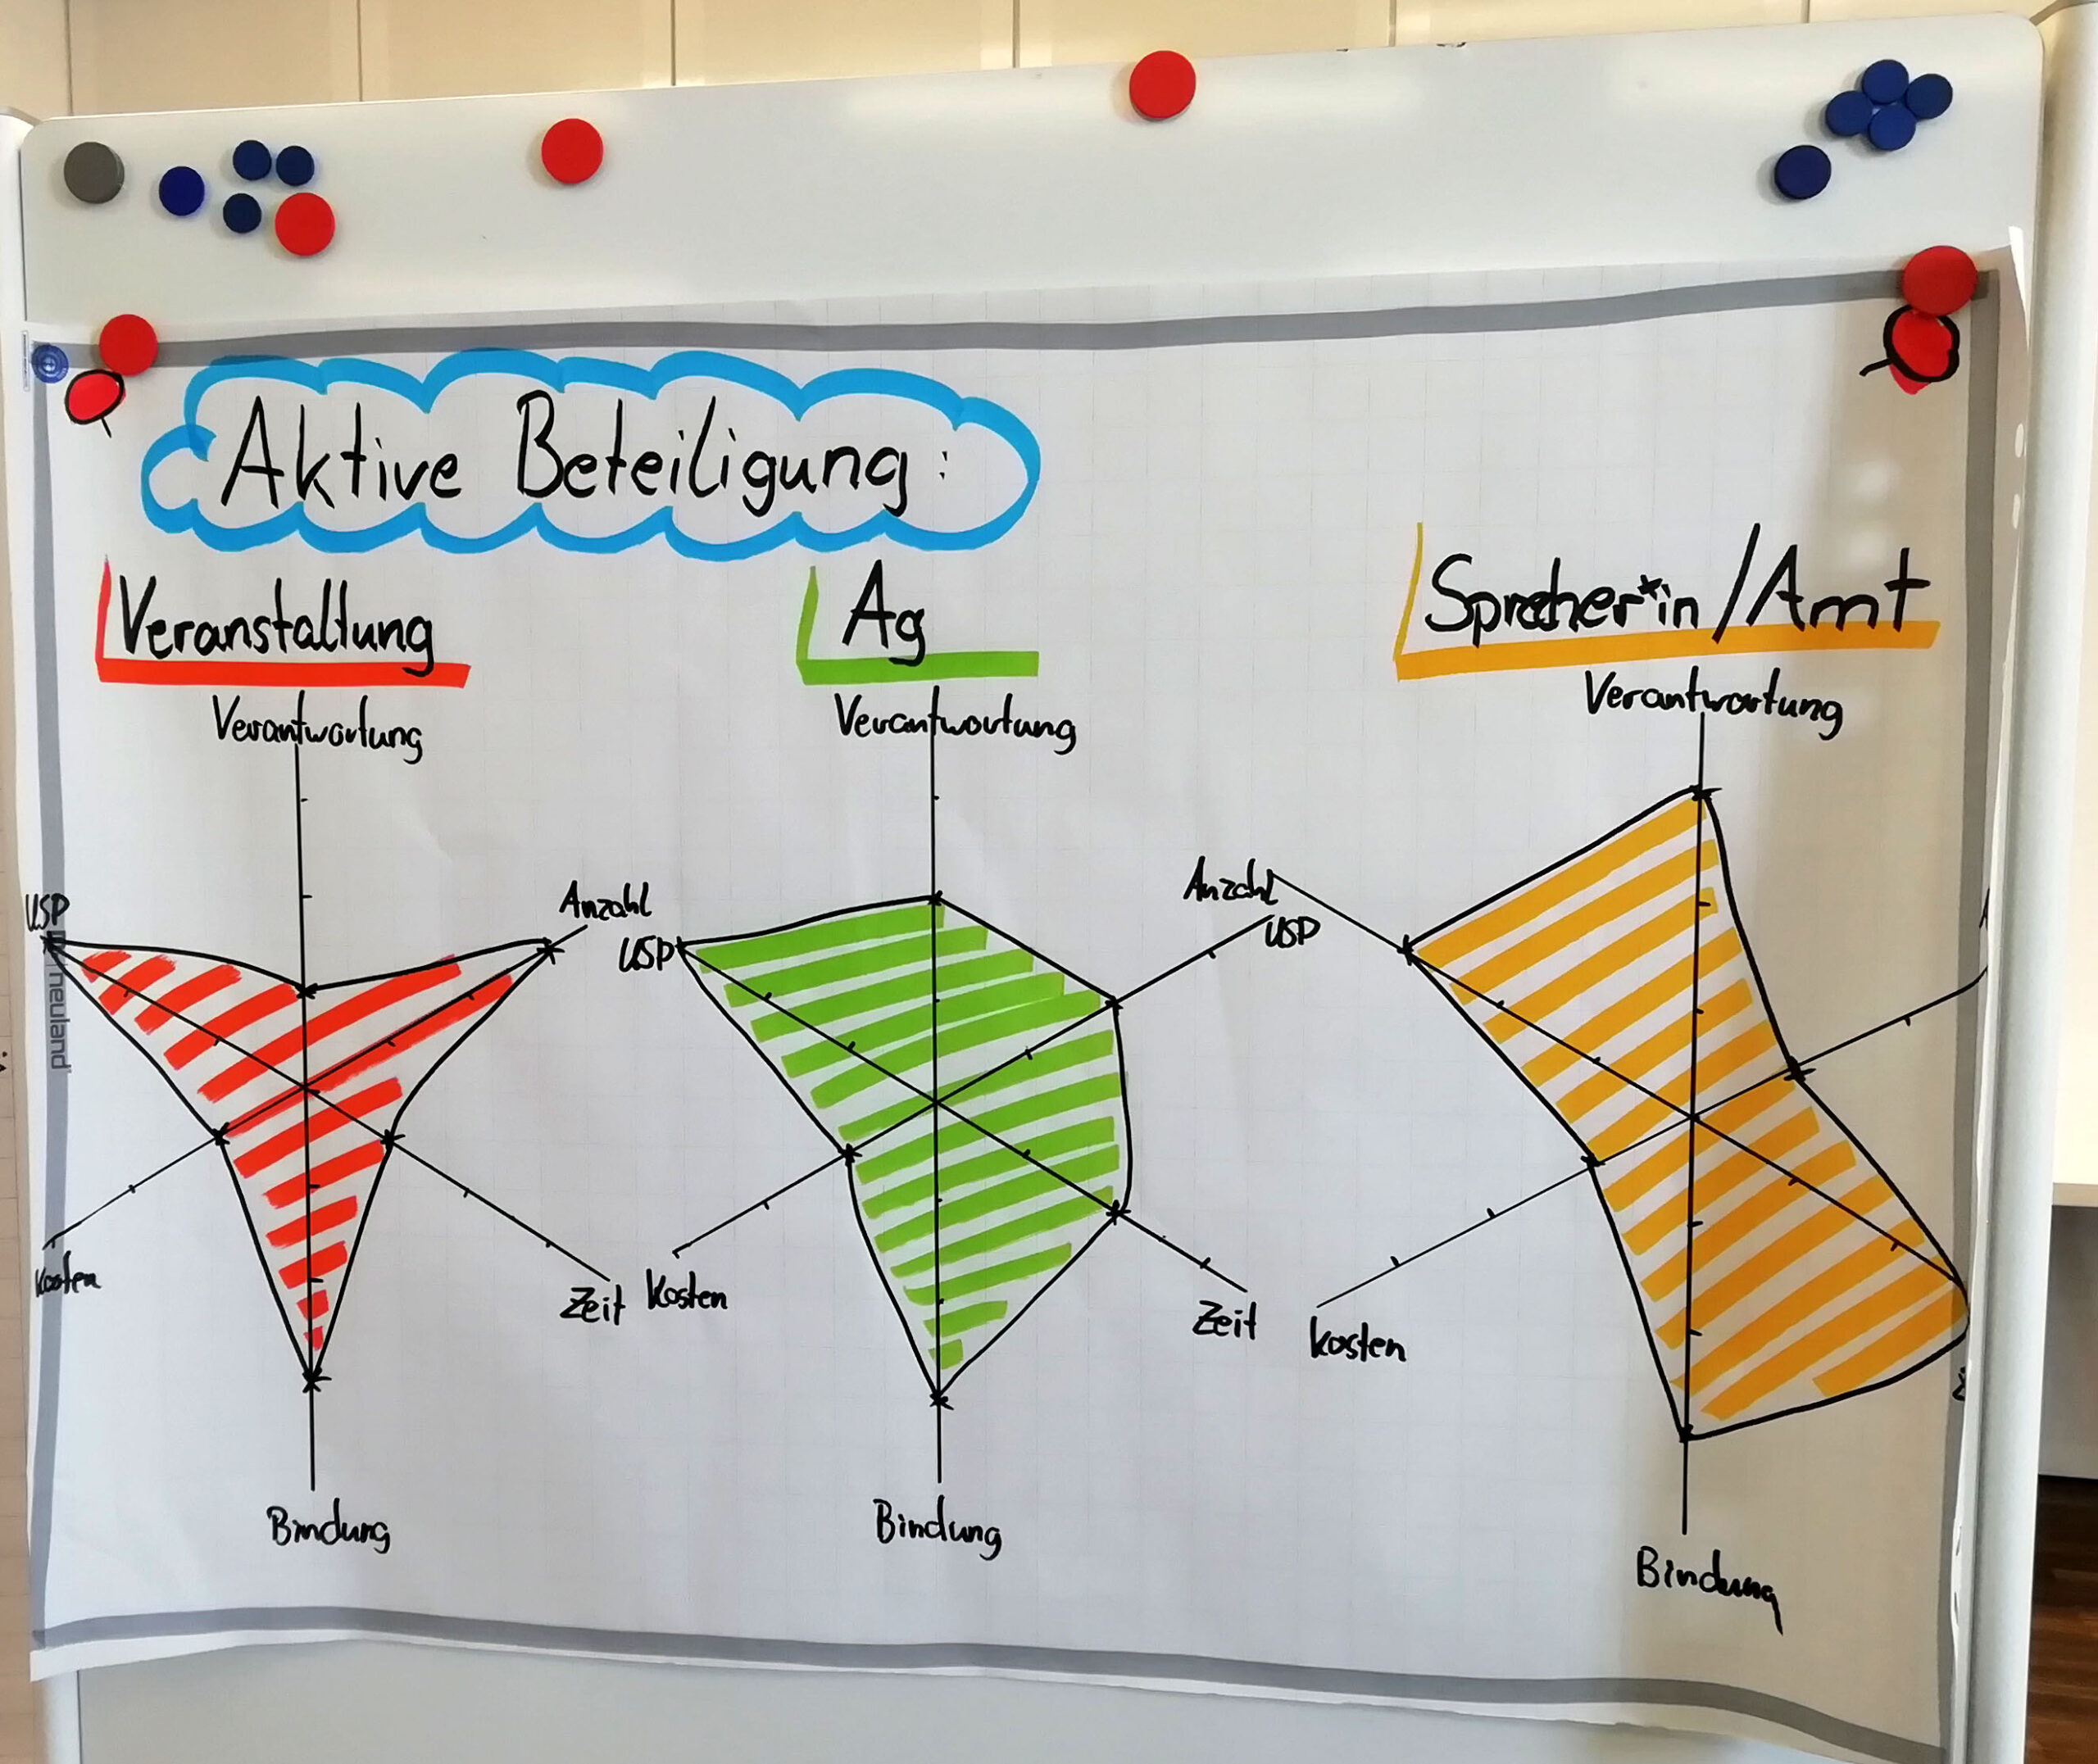 Aktive Beteiligung:
Veranstaltung
Ag
Sprecher*in/Amt
Verantwortung
Verantwortung
Verantwortung
USP
Anzahl
USP
Anzahl
USP
neuland
Kosten
Zeit
Kosten
Zeit
Kosten
Bindung
Bindung
Bindung